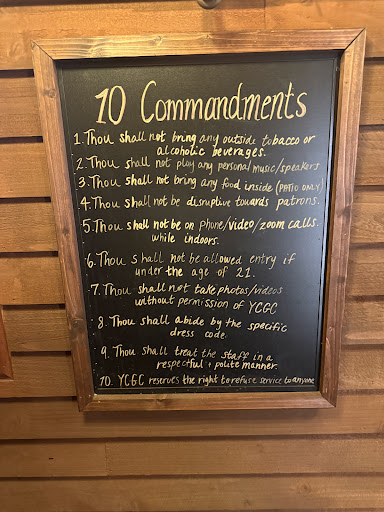 10 Commandments
1. Thou shall not bring any outside tobacco or
alcoholic beverages.
2. Thou shall not play any personal music/speakers
3. Thou shall not bring any food inside (PATIO ONLY)
4. Thou shall not be disruptive towards patrons.
5. Thou shall not be on phone/video/zoom calls
while indoors.
6. Thou shall not be allowed entry if
under the age of 21.
7. Thou shall not take photos/videos
without permission of YCGC
8. Thou shall abide by the specific
dress code.
9. Thou shall treat the staff in a
respectful + polite manner.
10. YCGC reserves the right to refuse service to anyone